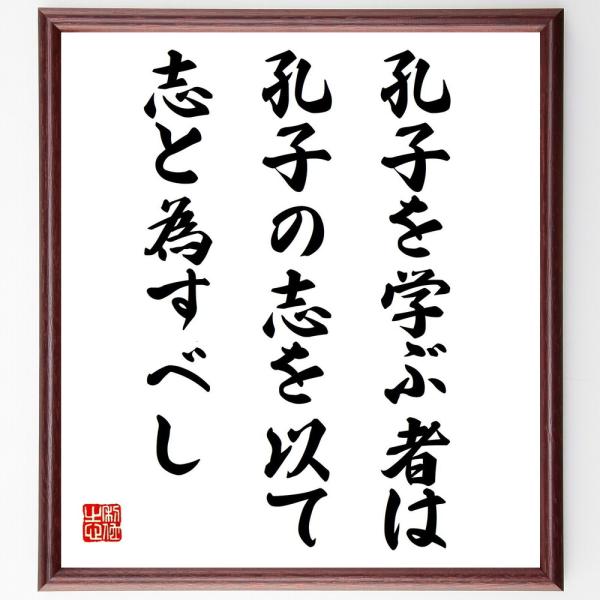 孔子を学ぶ者は
孔子の志を以て
志と為すべし